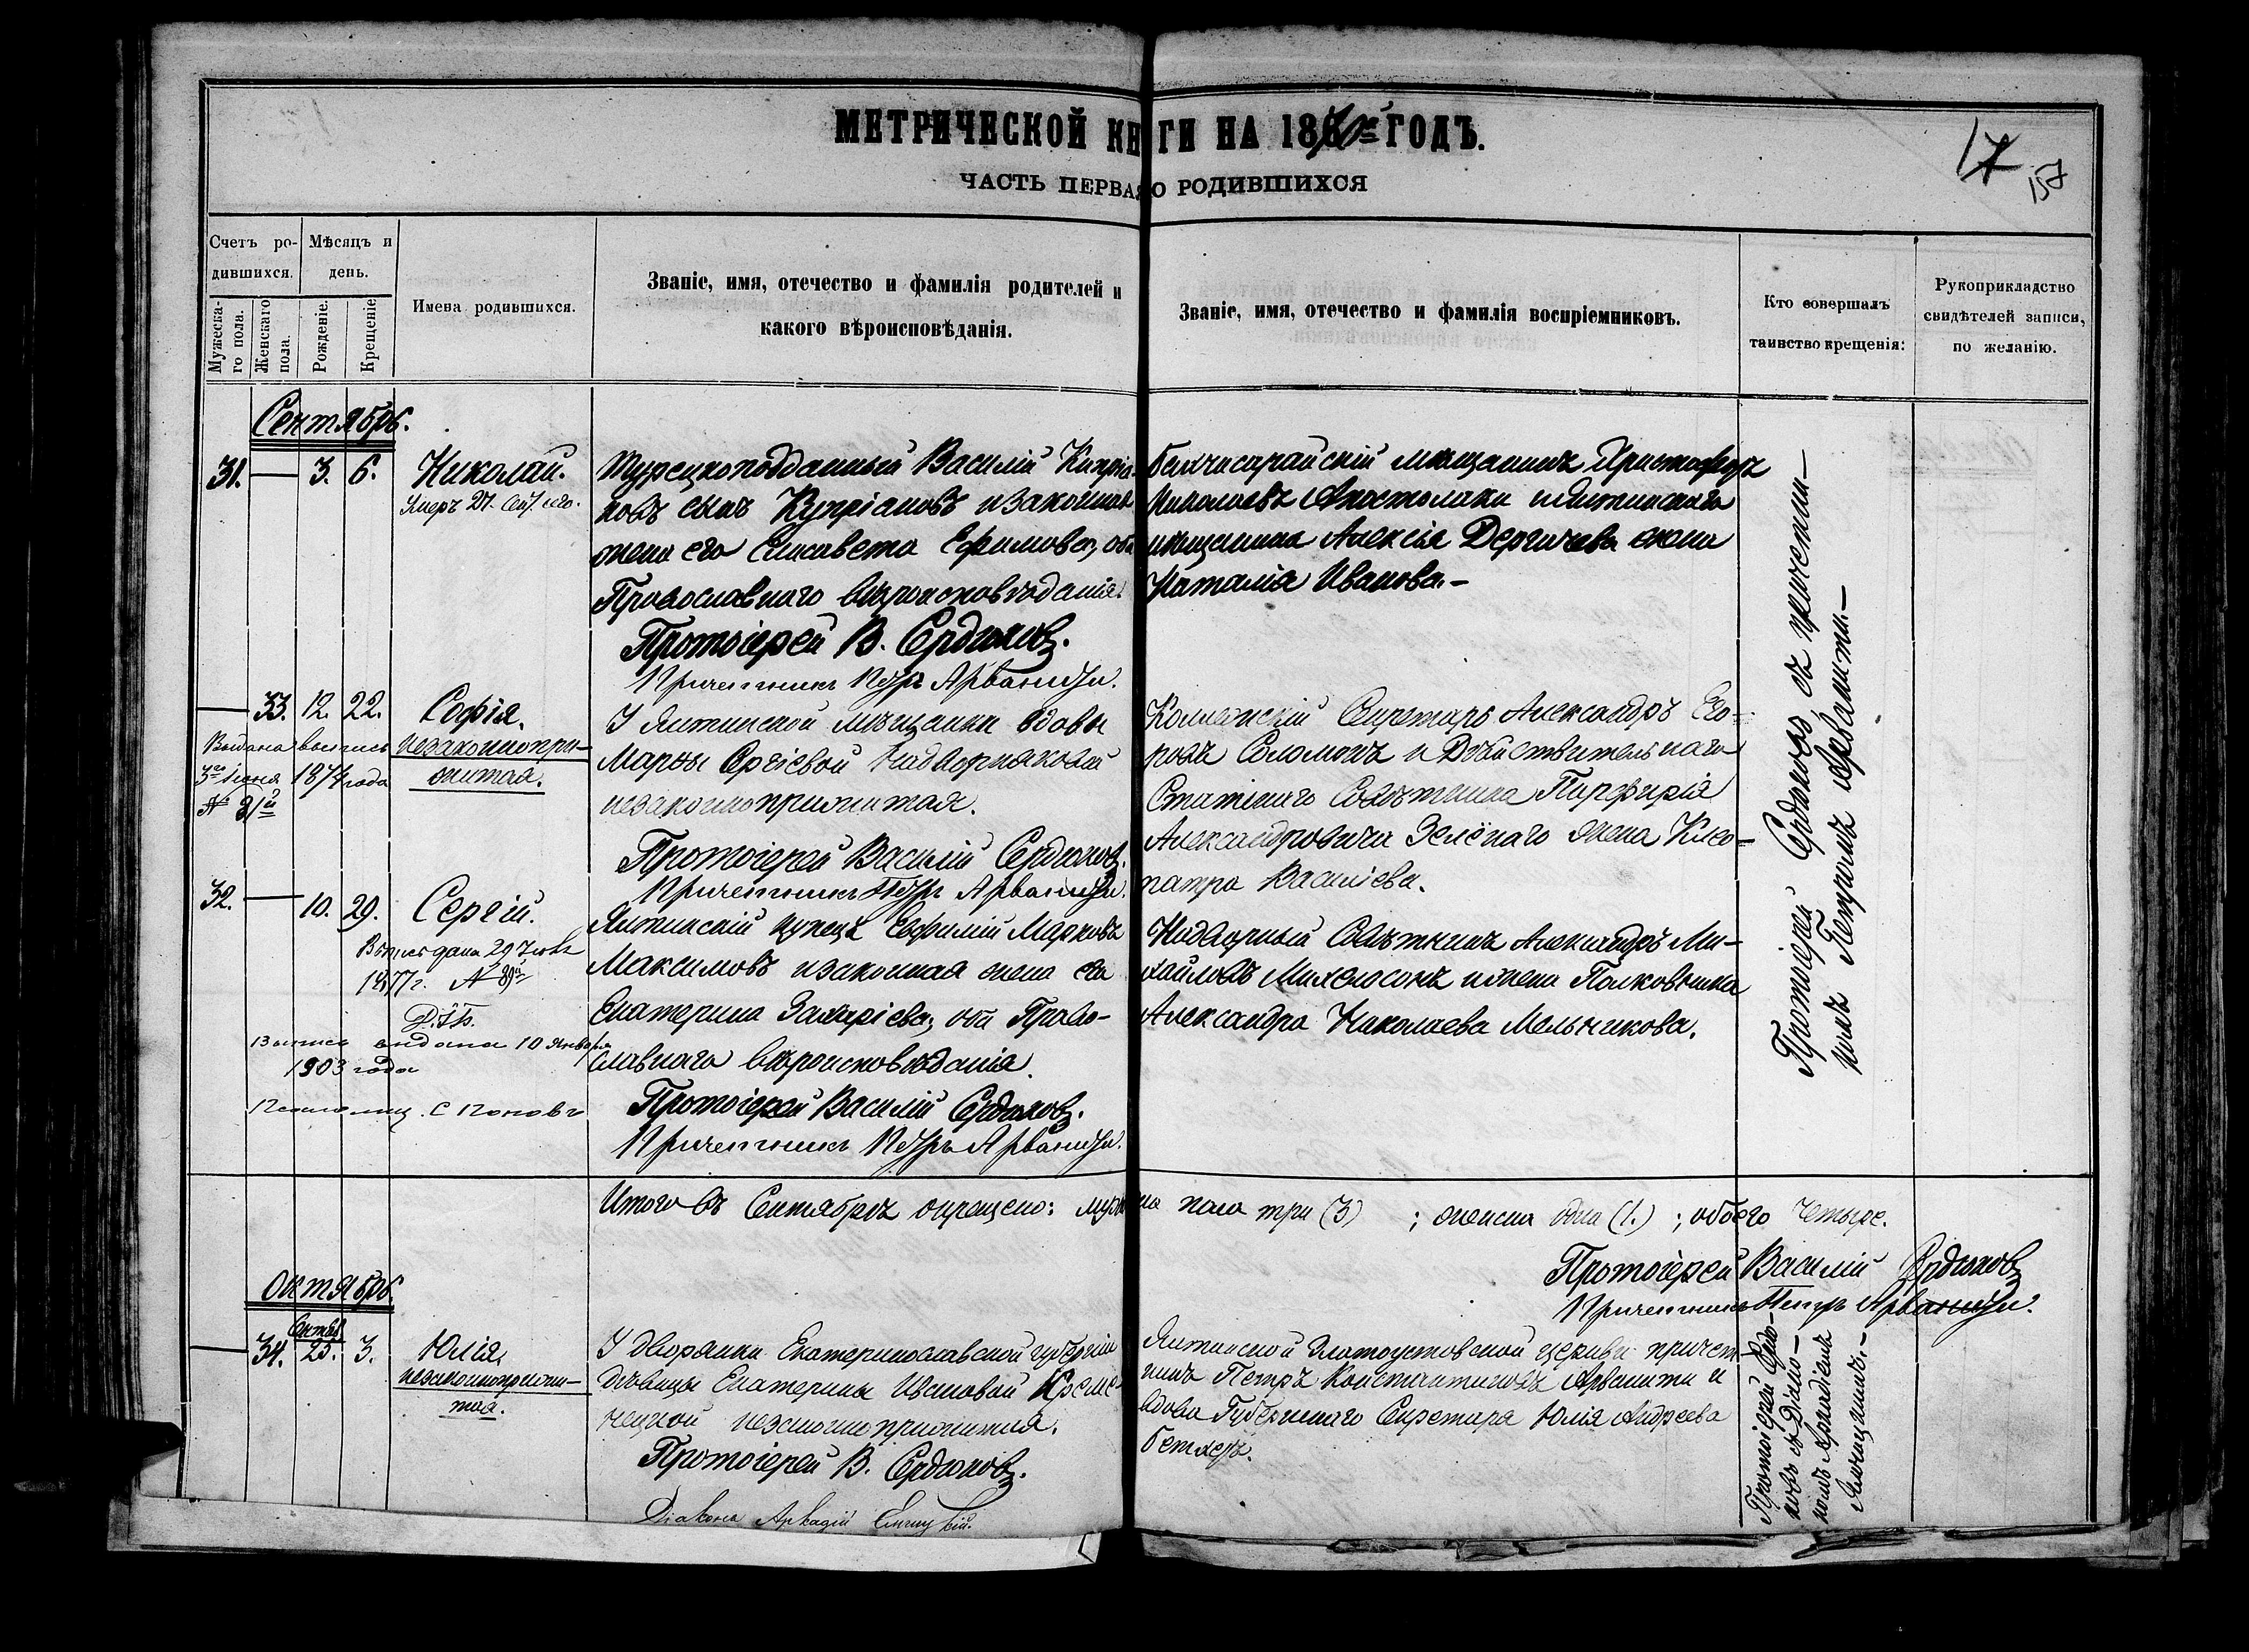 МЕТРИЧЕСКОЙ КНИГИ НА 187 ГОДЪ.
17
157
ЧАСТЬ ПЕРВАЯ О РОДИВШИХСЯ
Счетъ ро-
дившихся.
Мужеска-
го пола.
Женскаго
пола.
Мѣсяцъ и
день.
Рожденіе.
Крещеніе
Имена родившихся.
Званіе, имя, отечество и фамилія родителей и
какого вѣроисповѣданія.
Званіе, имя, отечество и фамилія воспріемниковъ.
Кто совершалъ
таинство крещенія:
Рукоприкладство
свидѣтелей записи,
по желанію.
Сентябрь.
31. — 3. 6. Николай.
Умеръ 27. Сен.
Турецкоподданный Василій Кипріа-
новъ сынъ Купріановъ и законная
жена его Елисавета Ефимова, оба
Православнаго вѣроисповѣданія.
Протоіерей В. Сердюковъ.
Причетникъ Петръ Арваниди.
Бахчисарайскій мѣщанинъ Христофоръ
Николаевъ Апостолаки и Ялтинскаго
мѣщанина Алексія Дергичева жена
Наталія Иванова.—
— 33. 12. 22. Софія.
незаконнопри-
житая.
Выдана выпись
3го іюня 1874 года
№ 81й
У Ялтинской мѣщанки вдовы
Марѳы Сергіевой Надворняковой
незаконноприжитая.
Протоіерей Василій Сердюковъ.
Причетникъ Петръ Арваниди.
Коллежскій Секретарь Александръ Его-
ровъ Соломонъ и Дѣйствительнаго
Статскаго Совѣтника Порфирія
Александровича Зелёнаго жена Клео-
патра Васильева.
32. — 10. 29. Сергій.
Выпись дана 29
1877 г. №
Выпись выдана 10 Января
1903 года
Псаломщ. С Поповъ
Ялтинскій купецъ Евфимій Марковъ
Максимовъ и законная жена его
Екатерина Захаріева, оба Право-
славнаго вѣроисповѣданія.
Протоіерей Василій Сердюковъ.
Причетникъ Петръ Арваниди.
Надворный Совѣтникъ Александръ Ми-
хайловъ Михельсонъ и жена Полковника
Александра Николаева Мельникова.
Протоіерей Сердюковъ съ причетни-
комъ Петромъ Арванити.—
Итого въ Сентябрѣ окрещено: мужска пола три (3) ; женска одна (1.) ; обоего четыре.
Протоіерей Василій Сердюковъ
Причетникъ Петръ Арваниди.
Октябрь.
Сентяб.
— 34. 25. 3. Юлія,
незаконноприжи-
тая.
У дворянки Екатеринославской губерніи
дѣвицы Екатерины Ивановой Кремe-
нецкой незаконноприжитая.
Протоіерей В. Сердюковъ.
Діаконъ Аркадій
Ялтинской Златоустовской церкви причет-
никъ Петръ Константиновъ Арванити и
вдова Губернскаго Секретаря Юлія Андреева
Протоіерей Сердю-
ковъ съ Діако-
номъ Аркадіемъ